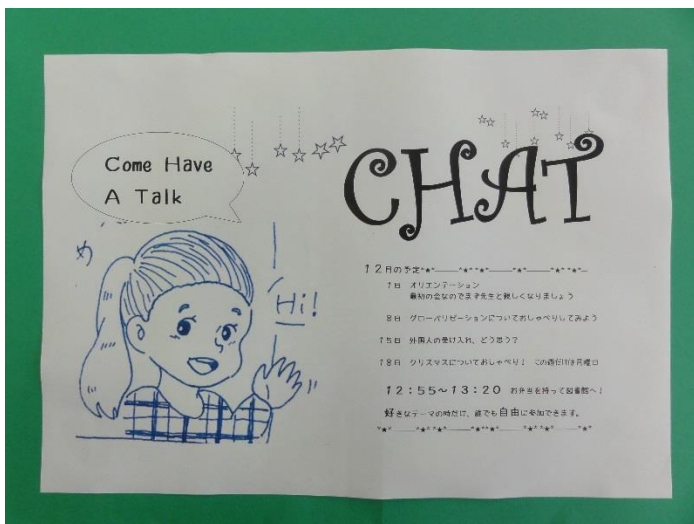 Come Have
A Talk
め
Hi!
CHAT
12月の予定
1日 オリエンテーション
最初の会なのでまず先生と親しくなりましょう
8日 グローバリゼーションについておしゃべりしてみよう
15日 外国人の受け入れ、どう思う?
18日 クリスマスについておしゃべり! この週だけは月曜日
12:55~13:20 お弁当を持って図書館へ!
好きなテーマの時だけ、誰でも自由に参加できます。